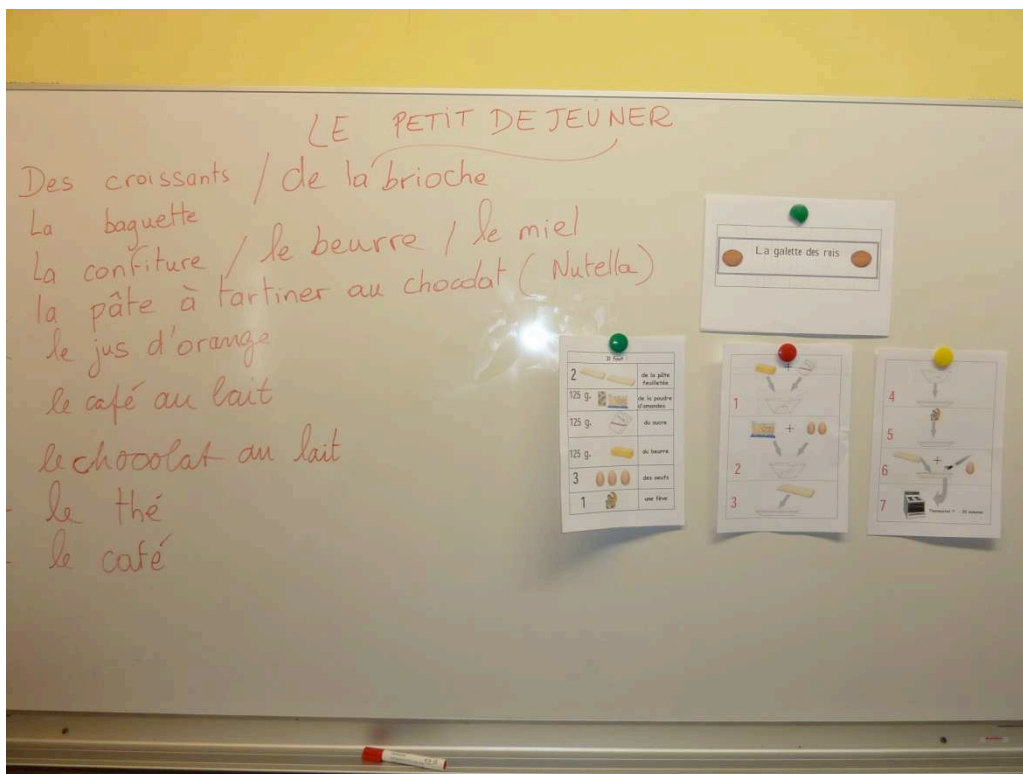 LE PETIT DEJEUNER
Des croissants / de la brioche
La baguette
La confiture / le beurre / le miel
la pâte à tartiner au chocolat (Nutella)
- le jus d'orange
le café au lait
le chocolat au lait
- le thé
- le café
La galette des rois
Il faut :
2 de la pâte feuilletée
125 g. de la poudre d'amandes
125 g. du sucre
125 g. du beurre
3 des oeufs
1 une fève
+
1
+
2
3
4
5
6 +
7 Thermostat 7 - 30 minutes